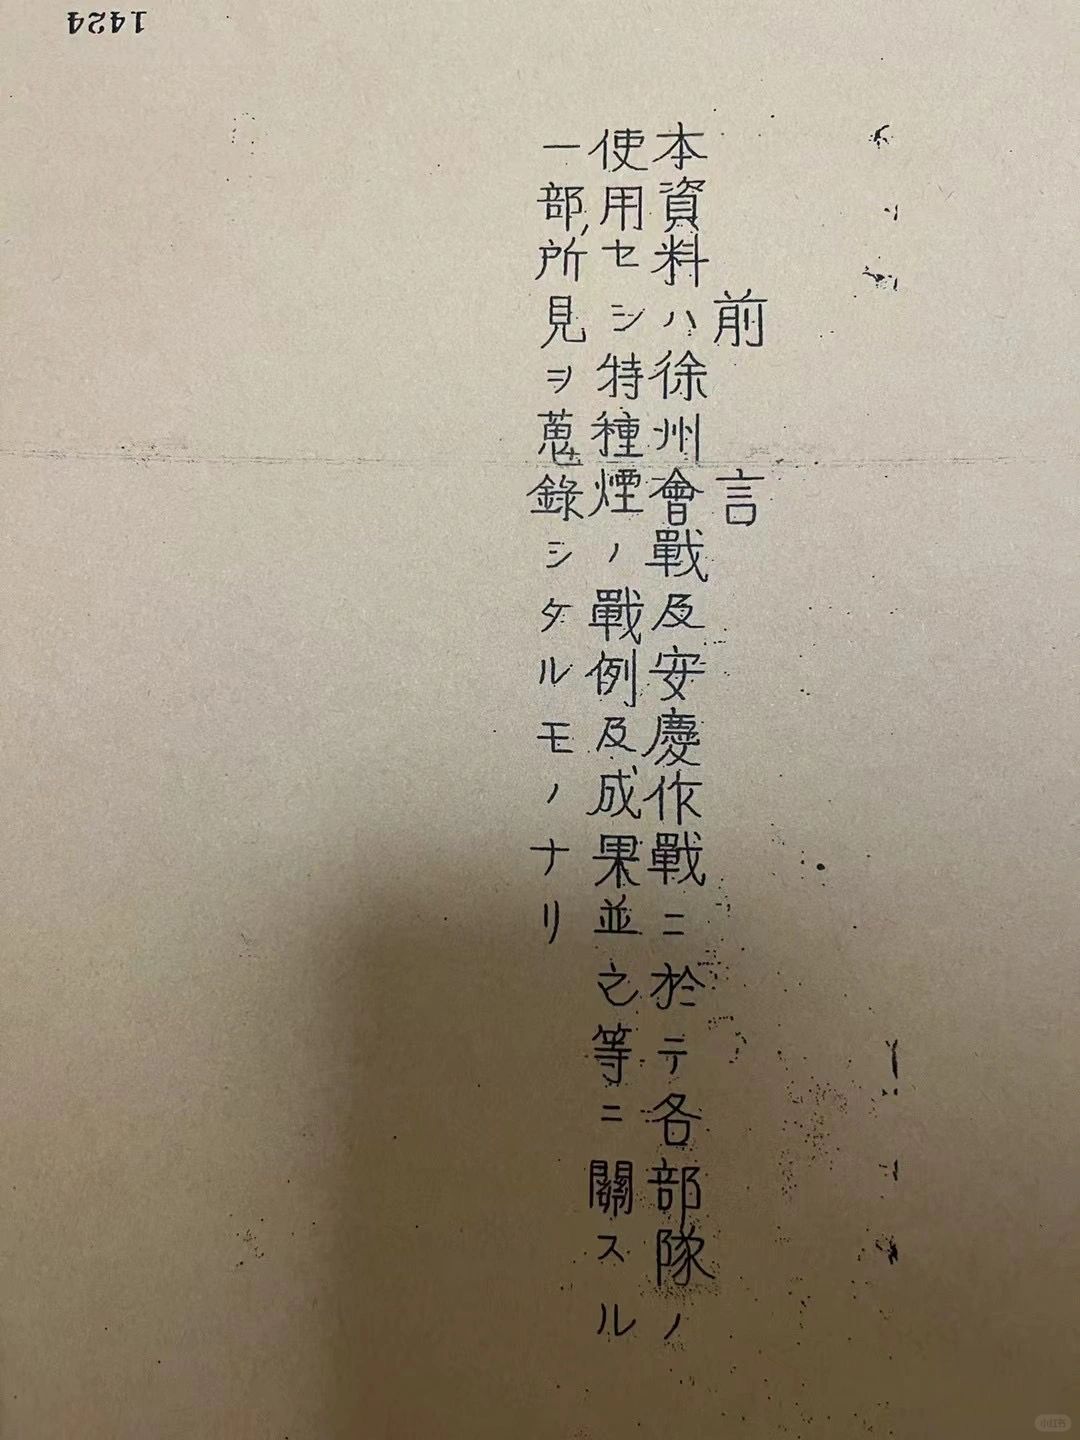 前言
本資料ハ徐州會戰及安慶作戰ニ於テ各部隊ノ
使用セシ特種煙ノ戰例及成果並之等ニ關スル
一部所見ヲ蒐錄シタルモノナリ
1424
小红书